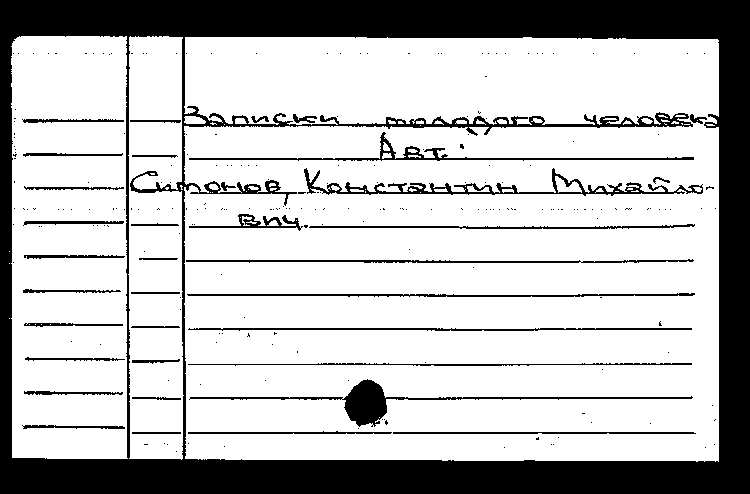 Записки молодого человека
Авт.:
Симонов, Константин Михайло-
вич.